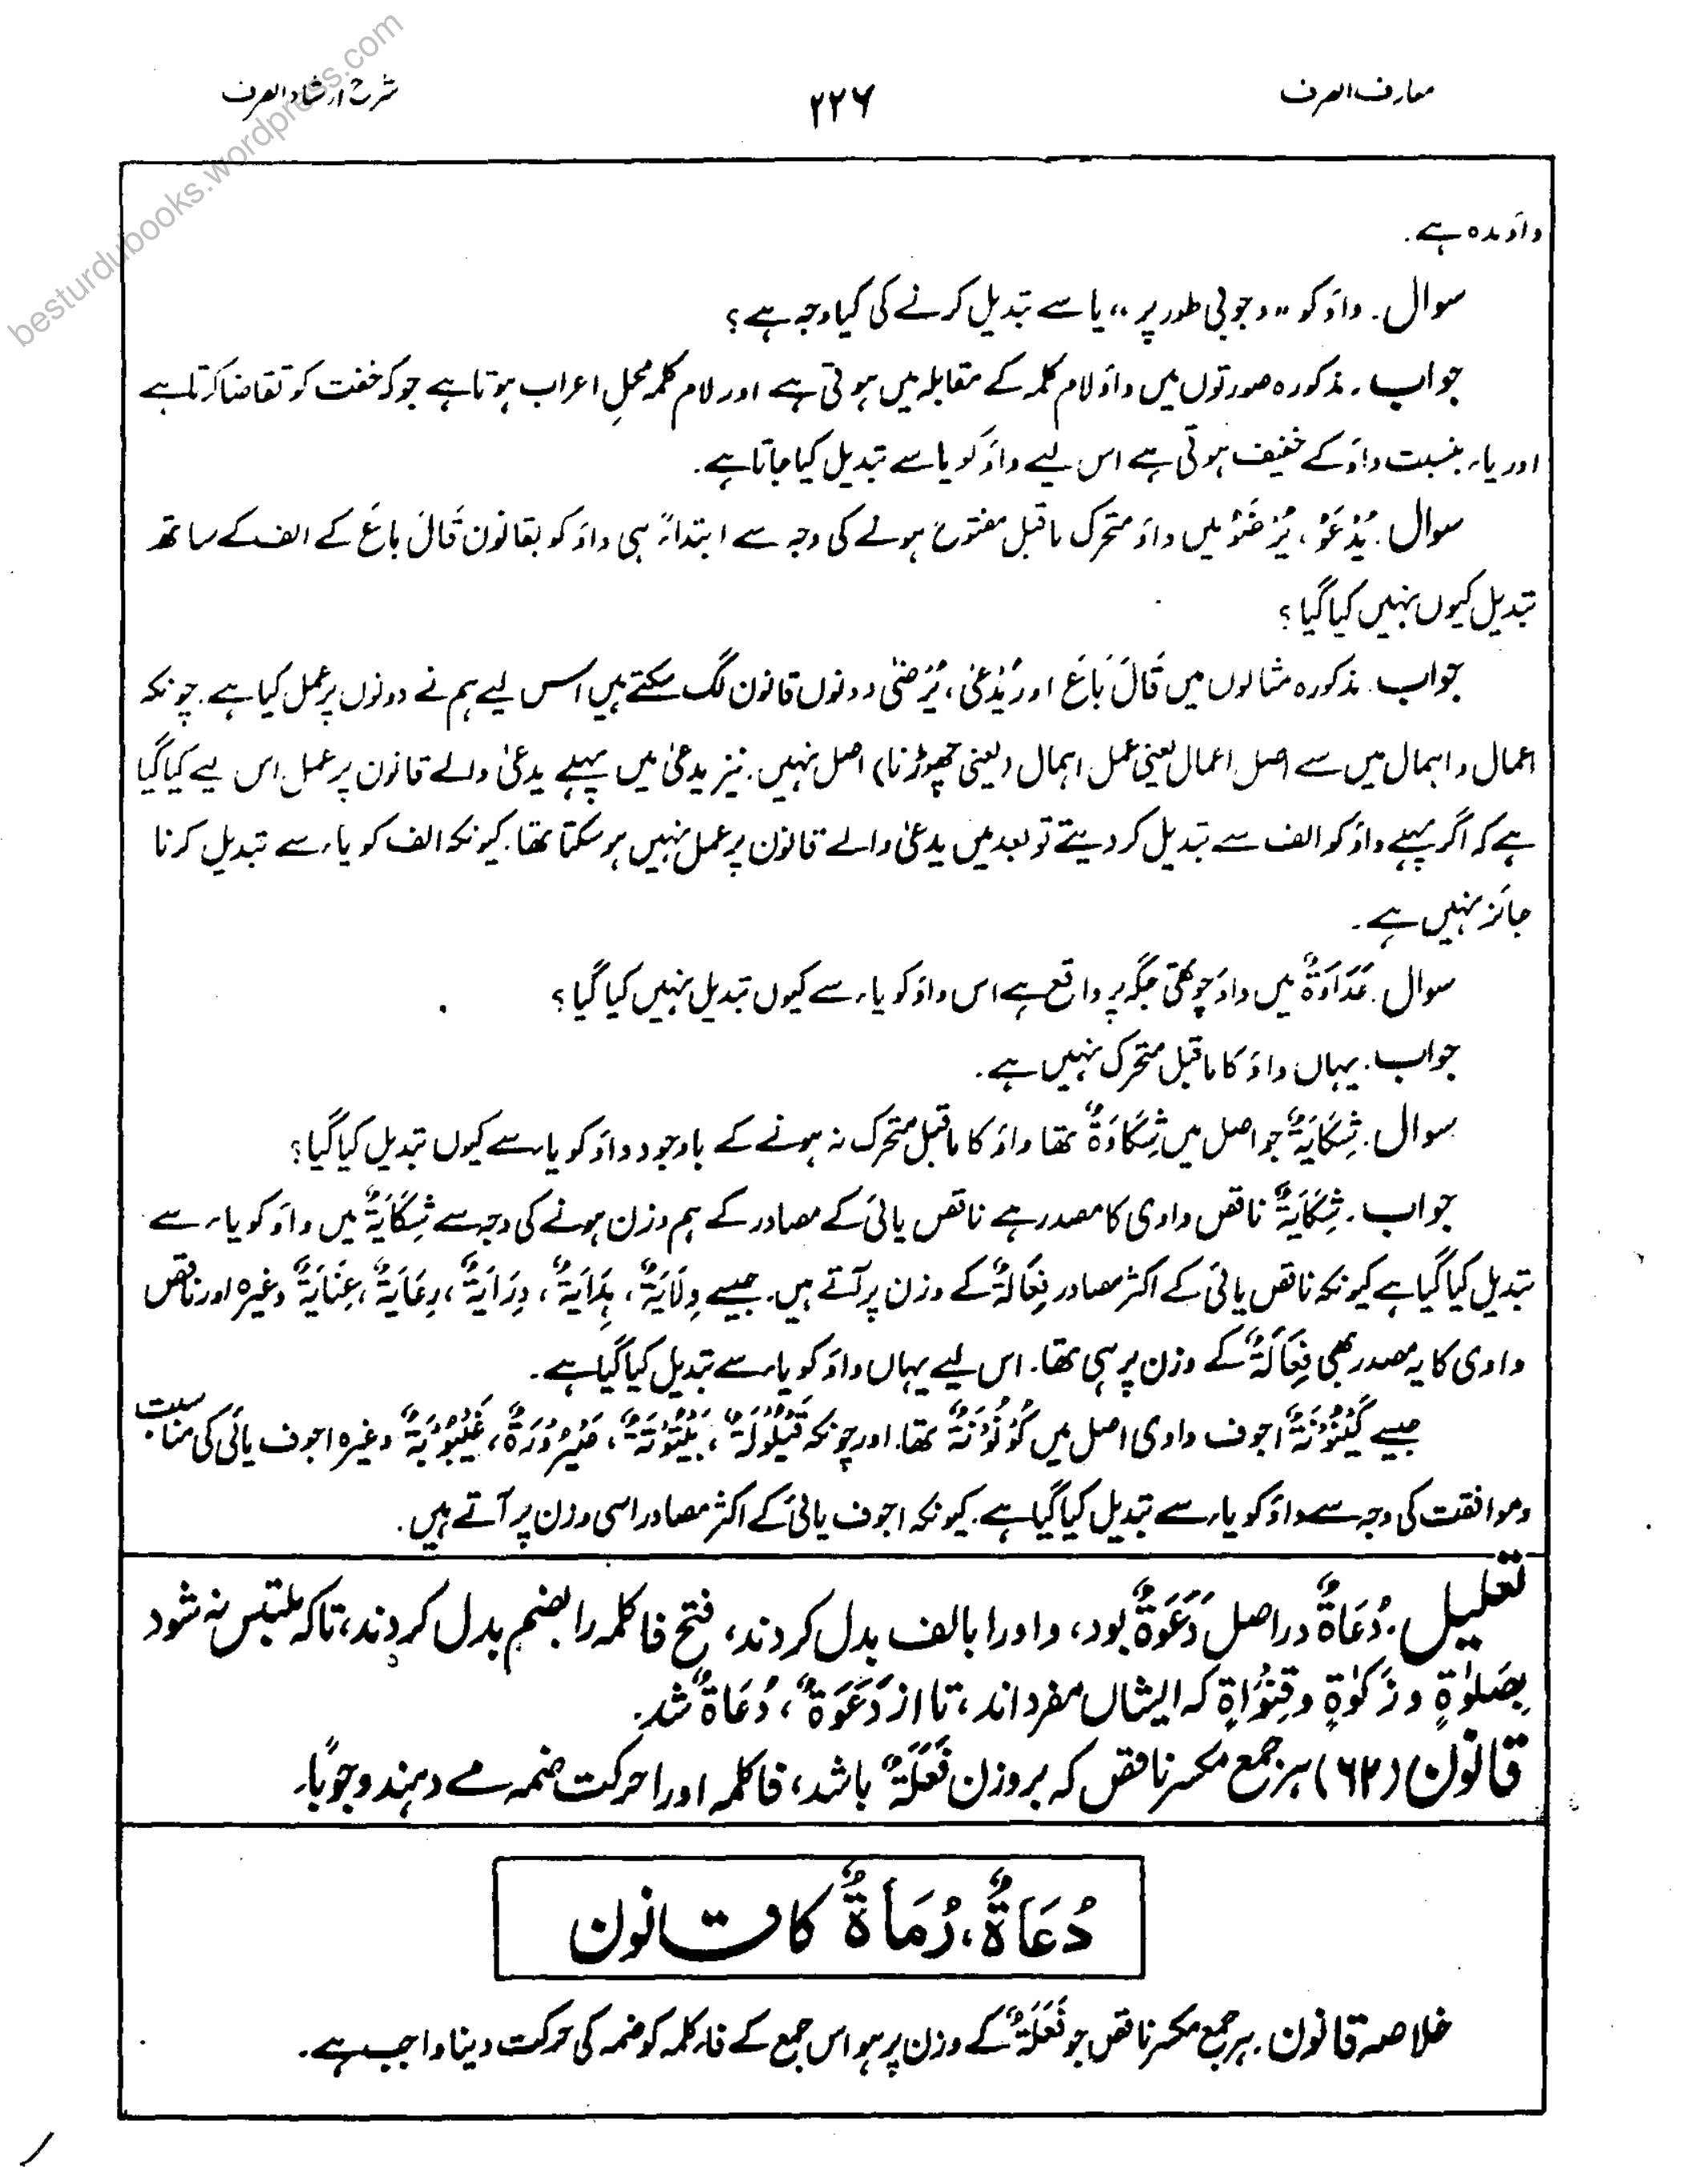 معارف الصرف
۲۲۶
شرح ارشاد الصرف
besturdubooks.wordpress.com
واؤ مدہ ہے۔
سوال۔ واؤ کو "وجوبی طور پر" یا سے تبدیل کرنے کی کیا وجہ ہے؟
جواب۔ مذکورہ صورتوں میں واؤ لام کلمہ کے مقابلہ میں ہوتی ہے اور لام کلمہ محلِ اعراب ہوتا ہے جو کہ خفت کو تقاضا کرتا ہے
اور یاء بنسبت واؤ کے خفیف ہوتی ہے اس لیے واؤ کو یا سے تبدیل کیا جاتا ہے۔
سوال۔ یُدْعَوُ، یُرْضَوُ میں واؤ متحرک ماقبل مفتوح ہونے کی وجہ سے ابتداءً ہی واؤ کو بقانون قَالَ بَاعَ کے الف کے ساتھ
تبدیل کیوں نہیں کیا گیا؟
جواب۔ مذکورہ مثالوں میں قَالَ بَاعَ اور یُدْعٰی، یُرْضٰی دونوں قانون لگ سکتے ہیں اس لیے ہم نے دونوں پر عمل کیا ہے۔ چونکہ
اعمال و اہمال میں سے اصل اعمال یعنی عمل۔ اہمال (یعنی چھوڑنا) اصل نہیں۔ نیز یدعیٰ میں پہلے یدعیٰ والے قانون پر عمل اس لیے کیا گیا
ہے کہ اگر پہلے واؤ کو الف سے تبدیل کر دیتے تو بعد میں یدعیٰ والے قانون پر عمل نہیں ہو سکتا تھا۔ کیونکہ الف کو یاء سے تبدیل کرنا
جائز نہیں ہے۔
سوال۔ عَدَاوَۃٌ میں واؤ چوتھی جگہ پر واقع ہے اس واؤ کو یاء سے کیوں تبدیل نہیں کیا گیا؟
جواب۔ یہاں واؤ کا ماقبل متحرک نہیں ہے۔
سوال۔ شِکَایَۃٌ جو اصل میں شِکَاوَۃٌ تھا واؤ کا ماقبل متحرک نہ ہونے کے باوجود واؤ کو یاء سے کیوں تبدیل کیا گیا؟
جواب۔ شِکَایَۃٌ ناقص واوی کا مصدر ہے ناقص یائی کے مصادر کے ہم وزن ہونے کی وجہ سے شِکَایَۃٌ میں واؤ کو یاء سے
تبدیل کیا گیا ہے کیونکہ ناقص یائی کے اکثر مصادر فِعَالَۃٌ کے وزن پر آتے ہیں۔ جیسے وِلَایَۃٌ، ہِدَایَۃٌ، دِرَایَۃٌ، رِعَایَۃٌ، عِنَایَۃٌ وغیرہ اور ناقص
واوی کا یہ مصدر بھی فِعَالَۃٌ کے وزن پر ہی تھا۔ اس لیے یہاں واؤ کو یاء سے تبدیل کیا گیا ہے۔
جیسے کَیْنُوْنَۃٌ اجوف واوی اصل میں کَوْنُوْنَۃٌ تھا۔ اور چونکہ قَیْلُوْلَۃٌ، بَیْتُوْتَۃٌ، صَیْرُوْرَۃٌ، غَیْبُوْبَۃٌ وغیرہ اجوف یائی کی مناسبت
وموافقت کی وجہ سے واؤ کو یاء سے تبدیل کیا گیا ہے۔ کیونکہ اجوف یائی کے اکثر مصادر اسی وزن پر آتے ہیں۔
تعلیل۔ دُعَاۃٌ در اصل دَعَوَۃٌ بود، واو را بالف بدل کردند، فتح فا کلمہ را بضم بدل کردند، تاکہ ملتبس نہ شود
بصَلوٰۃٍ و زَکوٰۃٍ و قِنْوَاۃٍ کہ ایشاں مفرد اند، تا از دَعَوَۃٌ، دُعَاۃٌ شد۔
قانون (۶۲) ہر جمع مکسر ناقص کہ بروزن فَعَلَۃٌ باشد، فا کلمہ اورا حرکت ضمہ مے دہند وجوبًا۔
دُعَاۃٌ، رُمَاۃٌ کا قانون
خلاصہ قانون۔ ہر جمع مکسر ناقص جو فَعَلَۃٌ کے وزن پر ہو اس جمع کے فاء کلمہ کو ضمہ کی حرکت دینا واجب ہے۔